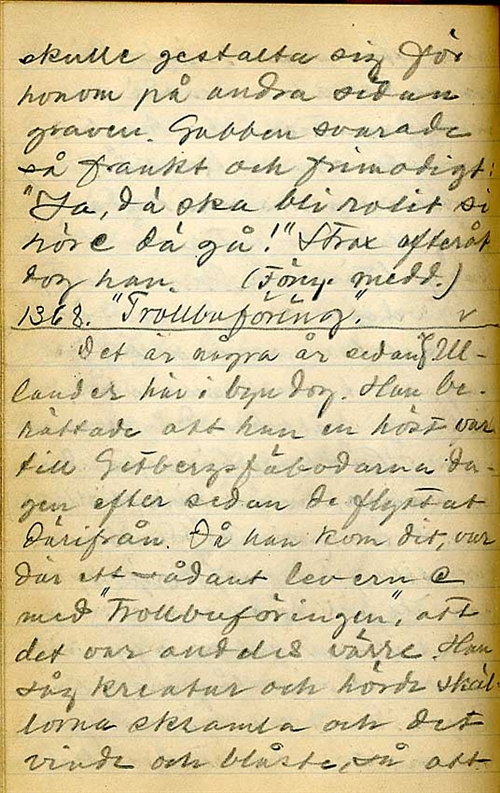 skulle gestalta sig för
honom på andra sidan
graven. Gubben svarade
så frankt och frimodigt:
"Ja, dá ska bli rolit si
hörc dá gå!" Strax efteråt
dog han. (Föreg. medd.)
1368. "Trollbuföring." v
Det är några år sedan Ul-
lander här i byn dog. Han be-
rättade att han en höst var
till Getbergsfäbodarna da-
gen efter sedan de flyttat
därifrån. Då han kom dit, var
där ett sådant levern e
med "Trollbuföringen", att
det var andeles värre. Han
såg kreatur och hörde skäl-
lorna skramla och det
vinde och blåste, så att